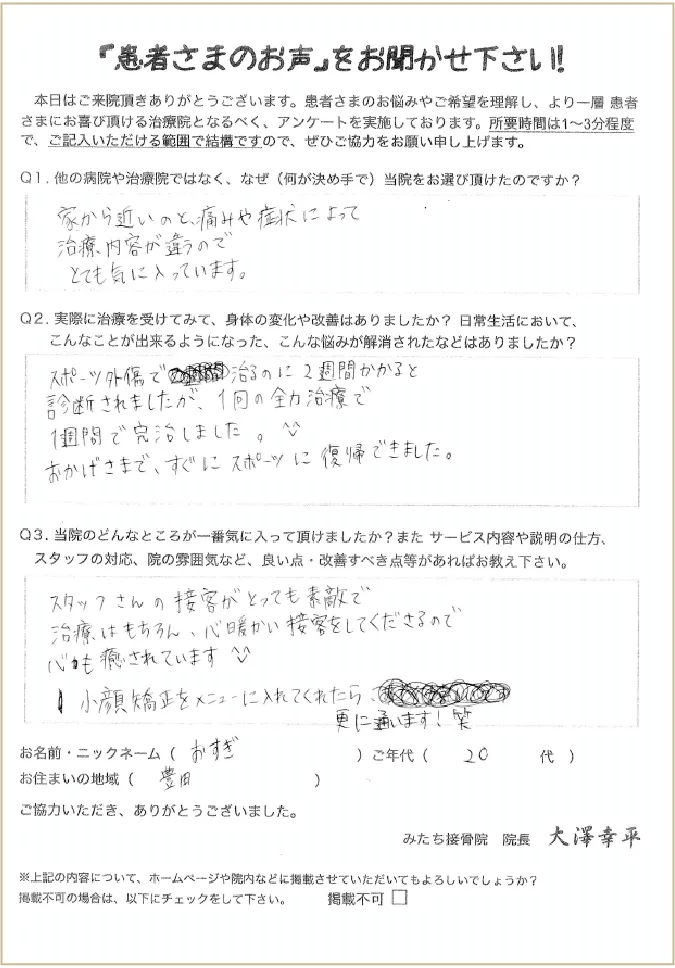 『患者さまのお声』をお聞かせ下さい!
本日はご来院頂きありがとうございます。患者さまのお悩みやご希望を理解し、より一層 患者
さまにお喜び頂ける治療院となるべく、アンケートを実施しております。所要時間は1〜3分程度
で、ご記入いただける範囲で結構ですので、ぜひご協力をお願い申し上げます。
Q1. 他の病院や治療院ではなく、なぜ（何が決め手で）当院をお選び頂けたのですか？
家から近いのと、痛みや症状によって
治療内容が違うので
とても気に入っています。
Q2. 実際に治療を受けてみて、身体の変化や改善はありましたか？ 日常生活において、
こんなことが出来るようになった、こんな悩みが解消されたなどはありましたか？
スポーツ外傷で 治るのに2週間かかると
診断されましたが、1回の全力治療で
1週間で完治しました。
おかげさまで、すぐにスポーツに復帰できました。
Q3. 当院のどんなところが一番気に入って頂けましたか？また サービス内容や説明の仕方、
スタッフの対応、院の雰囲気など、良い点・改善すべき点等があればお教え下さい。
スタッフさんの接客がとっても素敵で
治療はもちろん、心暖かい接客をしてくださるので
心も癒されています
小顔矯正をメニューに入れてくれたら
更に通います！笑
お名前・ニックネーム（ おすぎ ）ご年代（ 20 代 ）
お住まいの地域（ 豊田 ）
ご協力いただき、ありがとうございました。
みたち接骨院 院長 大澤幸平
※上記の内容について、ホームページや院内などに掲載させていただいてもよろしいでしょうか？
掲載不可の場合は、以下にチェックをして下さい。 掲載不可 □